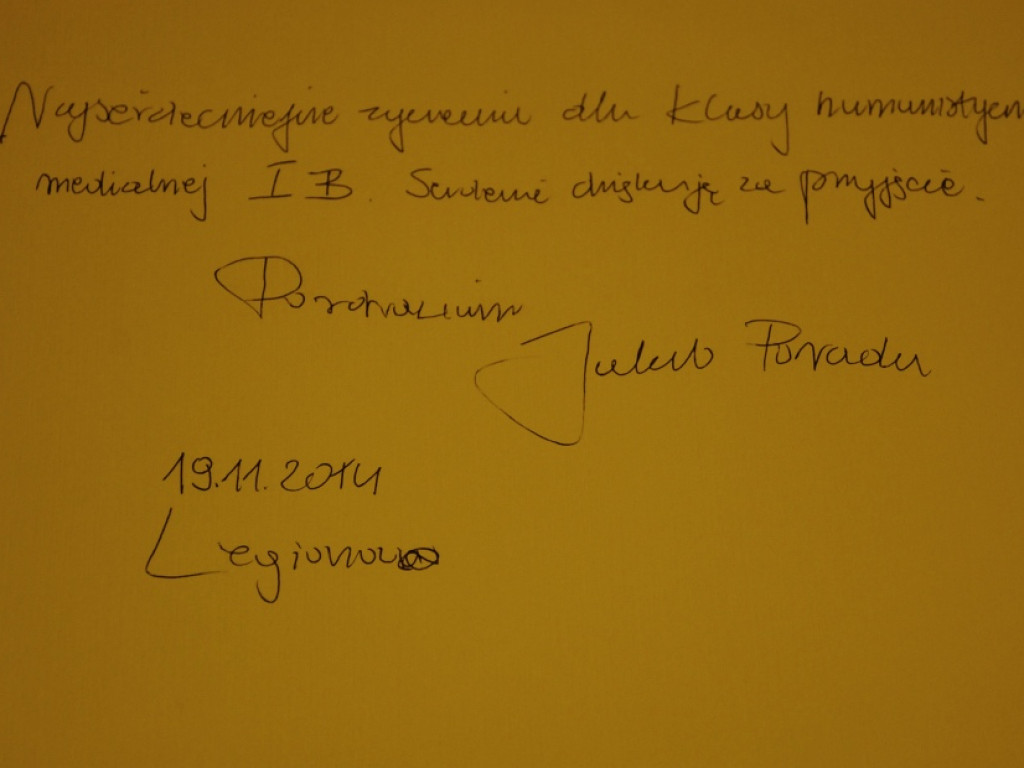 Najserdeczniejsze życzenia dla klasy humanistyczn
medialnej I B. Serdecznie dziękuję za przyjście.
Pozdrawiam
Jakub Porada
19.11.2014
Legionowo